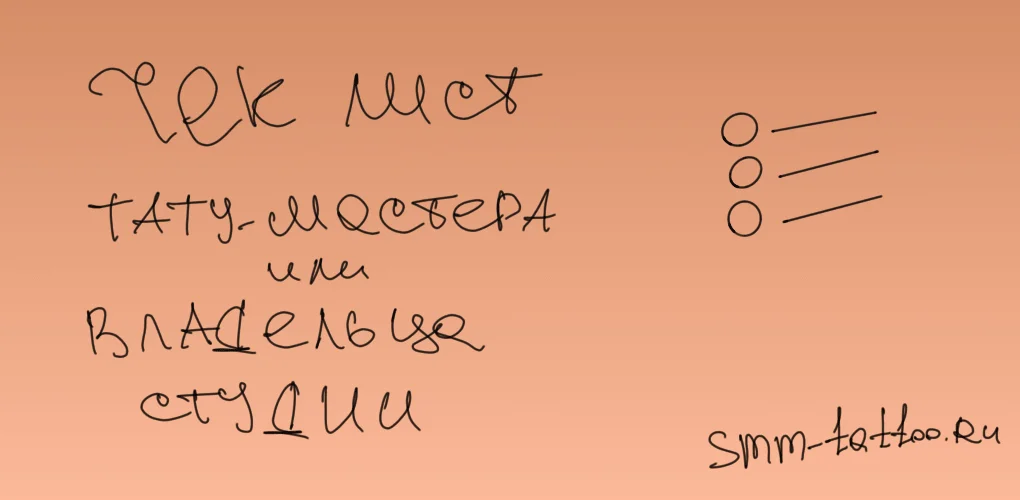 Чек лист
ТАТУ-мастера
или
Владельца
студии
smm-tattoo.ru